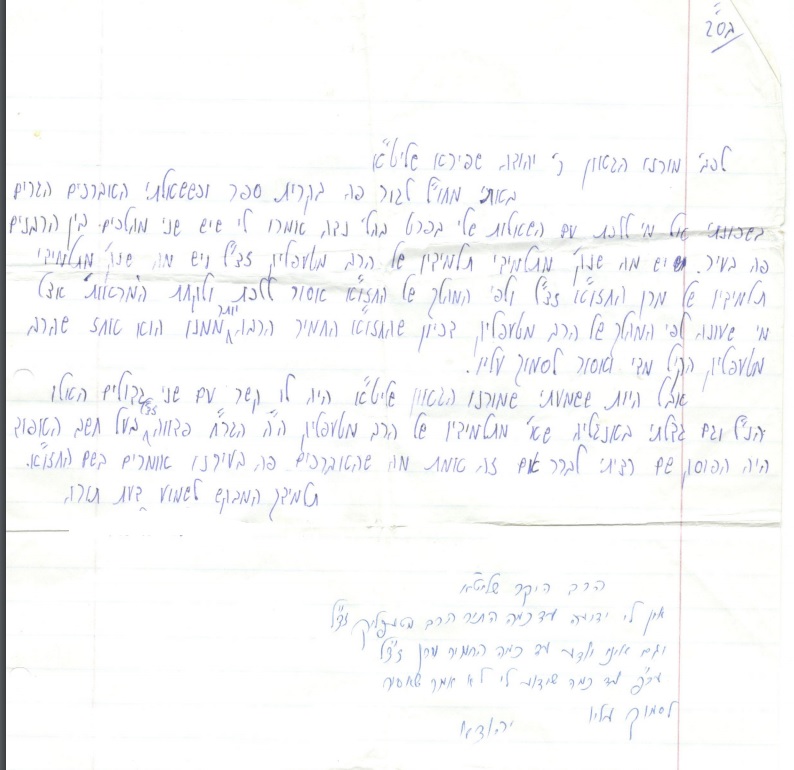 בס"ד
לכב' מורנו הגאון ר' יהודה שפירא שליט"א
באתי מחו"ל לגור פה בקרית ספר וכששאלתי האברכים הגרים
בשכונתי אל מי ללכת עם השאלות שלי בפרט בהל' נדה אומרו לי שיש שני מהלכים בין הרבנים
פה בעיר. יש מה שנק' מתלמידי תלמידיו של הרב מטעפליק זצ"ל ויש מה שנק' מתלמידי
תלמידיו של מרן החזו"א זצ"ל ולפי המהלך של החזו"א אסור ללכת ולקחת המראות אצל
מי שעונה לפי המהלך של הרב מטעפליק, בכיון שהחזו"א החמיר הרבה יותר ממנו הוא אוחז שהרב
מטעפליק הקיל מדי ואסור לסמוך עליו.
אבל היות ששמעתי שמורנו הגאון שליט"א היה לו קשר עם שני גדולים האלו
הנ"ל וגם גדלתי באנגליה שא' מתלמידיו של הרב מטעפליק ה"ה הגר"ח פדווה זצ"ל בעל חשב האפוד
היה הפוסק שם רציתי לברר אם זה אמת מה שהאברכים פה בעירנו אומרים בשם החזו"א.
תלמידך המבקש לשמוע דעת תורה
הרב היקר שליט"א
אין לי ידיעה עד כמה התיר הרב מטפליק זצ"ל
וגם אינני יודע עד כמה החמיר מרן זצ"ל
עכ"פ עד כמה שידוע לי לא אמר שאסור
לסמוך עליו
יהודה